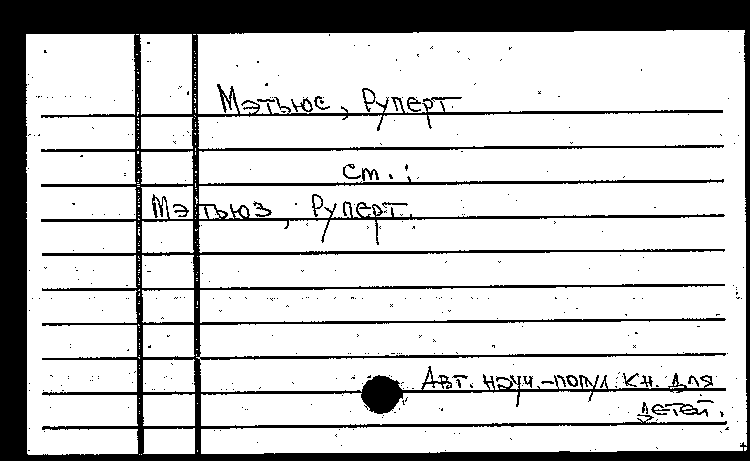 Мэтьюс, Руперт
см.:
Мэтьюз, Руперт.
Авт. науч.-попул кн. для
детей.